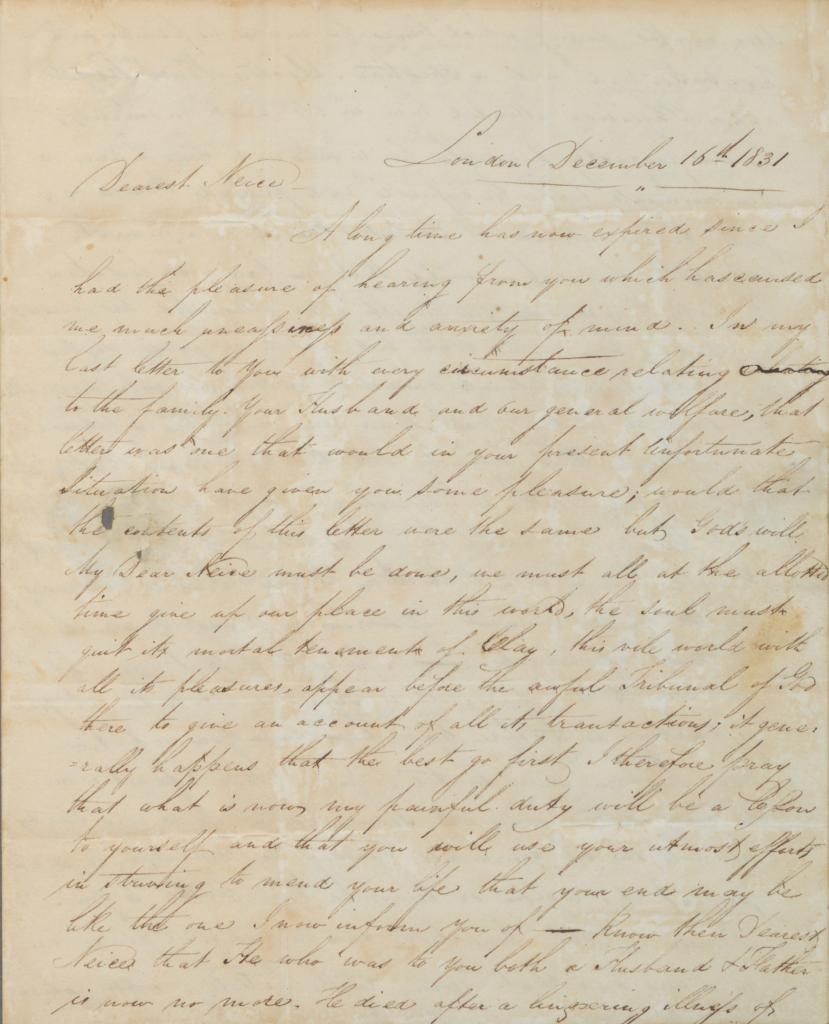 London December 16th 1831
Dearest Neice
A long time has now expired since I
had the pleasure of hearing from you which has caused
me much uneassiness and anxiety of mind. In my
last letter to You with every circumstance relating
to the family. Your Husband and our general welfare, that
letter was one that would in your present unfortunate
Situation have given you some pleasure; would that
the contents of this letter were the same but Gods will
My Dear Neice must be done, we must all at the allotted
time give up our place in this world, the soul must
quit its mortal tenament of Clay, this vile world with
all its pleasures, appear before the awful Tribunal of God
there to give an account of all its transactions; it gene-
=rally happens that the best go first I therefore pray
that what is now my painful duty will be a Lesson
to yourself and that you will use your utmost efforts
in striving to mend your life that your end may be
like the one I now inform You of — Know then Dearest
Neice that He who was to you both a Husband & Father
is now no more. He died after a lingering illness of